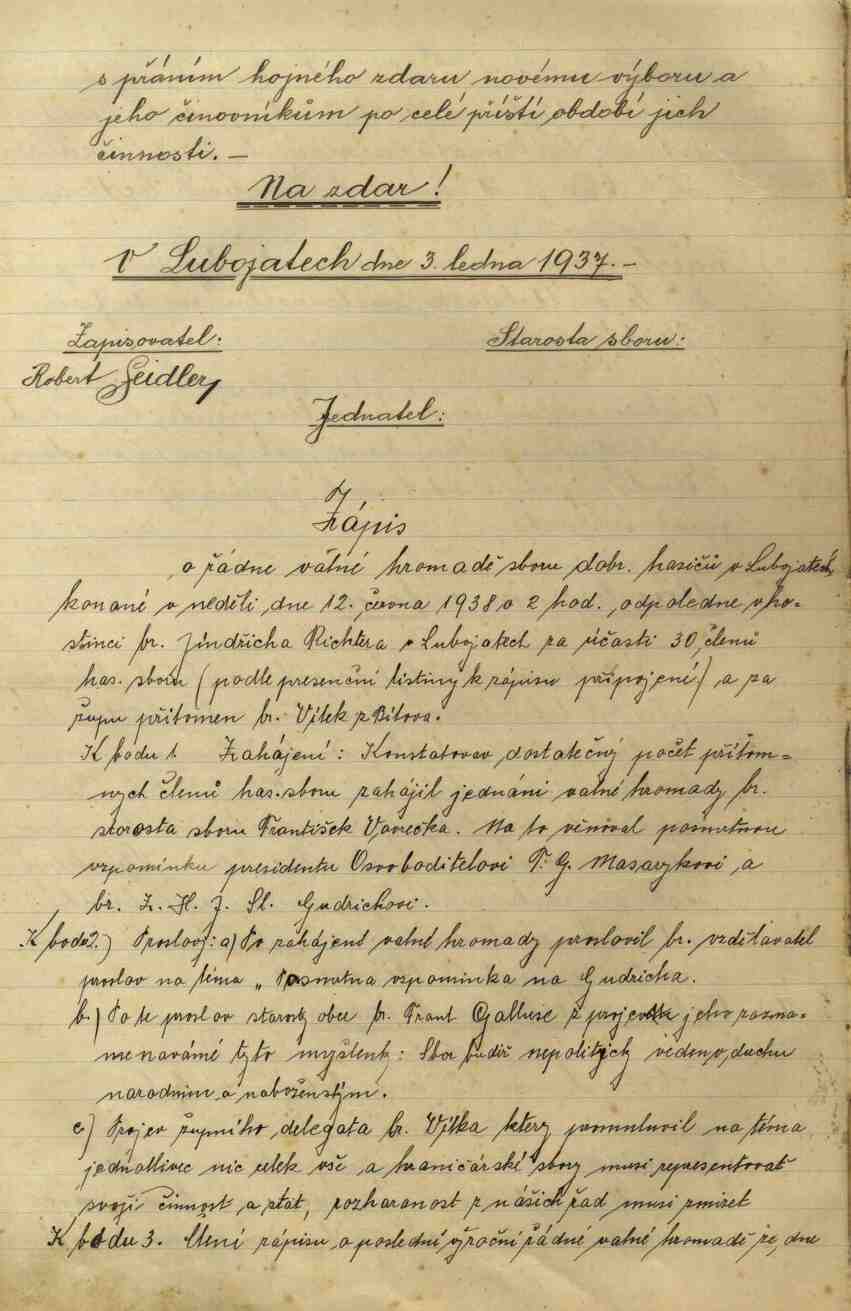 s přáním hojného zdaru novému výboru a
jeho činovníkům po celé příští období jich
činnosti. —
Na zdar!
V Lubojatech dne 3. ledna 1937. —
Zapisovatel:
Starosta sboru:
Robert Seidler
Jednatel:
Zápis
o řádne válné hromadě sboru dobr. hasičů v Lubojatech,
konané v neděli dne 12. června 1938 o 2 hod. odpoledne v ho-
stinci br. Jindřicha Richtera v Lubojatech za účasti 30 členů
has. sboru (podle presenční listiny k zápisu připojené) a za
župu přítomen br. Vítek z Bítova.
K bodu 1 Zahájení: Konstatovav dostatečný počet přítom=
nych členů has. sboru zahájil jednání valné hromady br.
starosta sboru František Vavrečka. Na to věnoval posmutnou
vzpomínku presidentu Osvoboditelovi T. G. Masarykovi a
br. Z. H. J. Sl. Gudrichovi.
K bodu 2.) Proslovy: a) Po zahájení valné hromady proslovil br. vzdělavatel
proslov na téma „Posmutna vzpomínka na Gudricha.
b.) Po te proslov starosty obce br. Frant Galluse z projevu jeho zazna=
menaváme tyto myšlenky: Sbor budiž nepoliticky veden v duchu
narodnim a naboženským.
c) Projev župního delegata br. Vítka ktery promluvil na téma
jednotlivec nic celek vše a hraničárské sbory musi representovat
svojí činnost a stat, rozharanost z nášich řad musi zmizet
K bodu 3. Čtení zápisu o poslední výroční řádné valné hromadě ze dne